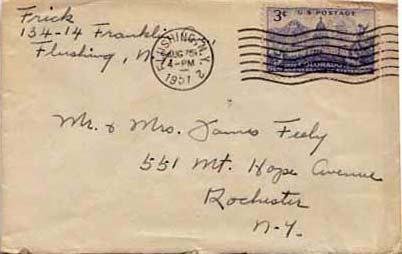 Frick
134-14 Franklin
Flushing, N.
FLUSHING, N.Y. 2
AUG
4-PM
1951
3¢ U.S. POSTAGE
COLORADO
Mr. & Mrs. James Feely
551 Mt. Hope Avenue
Rochester
N.Y.